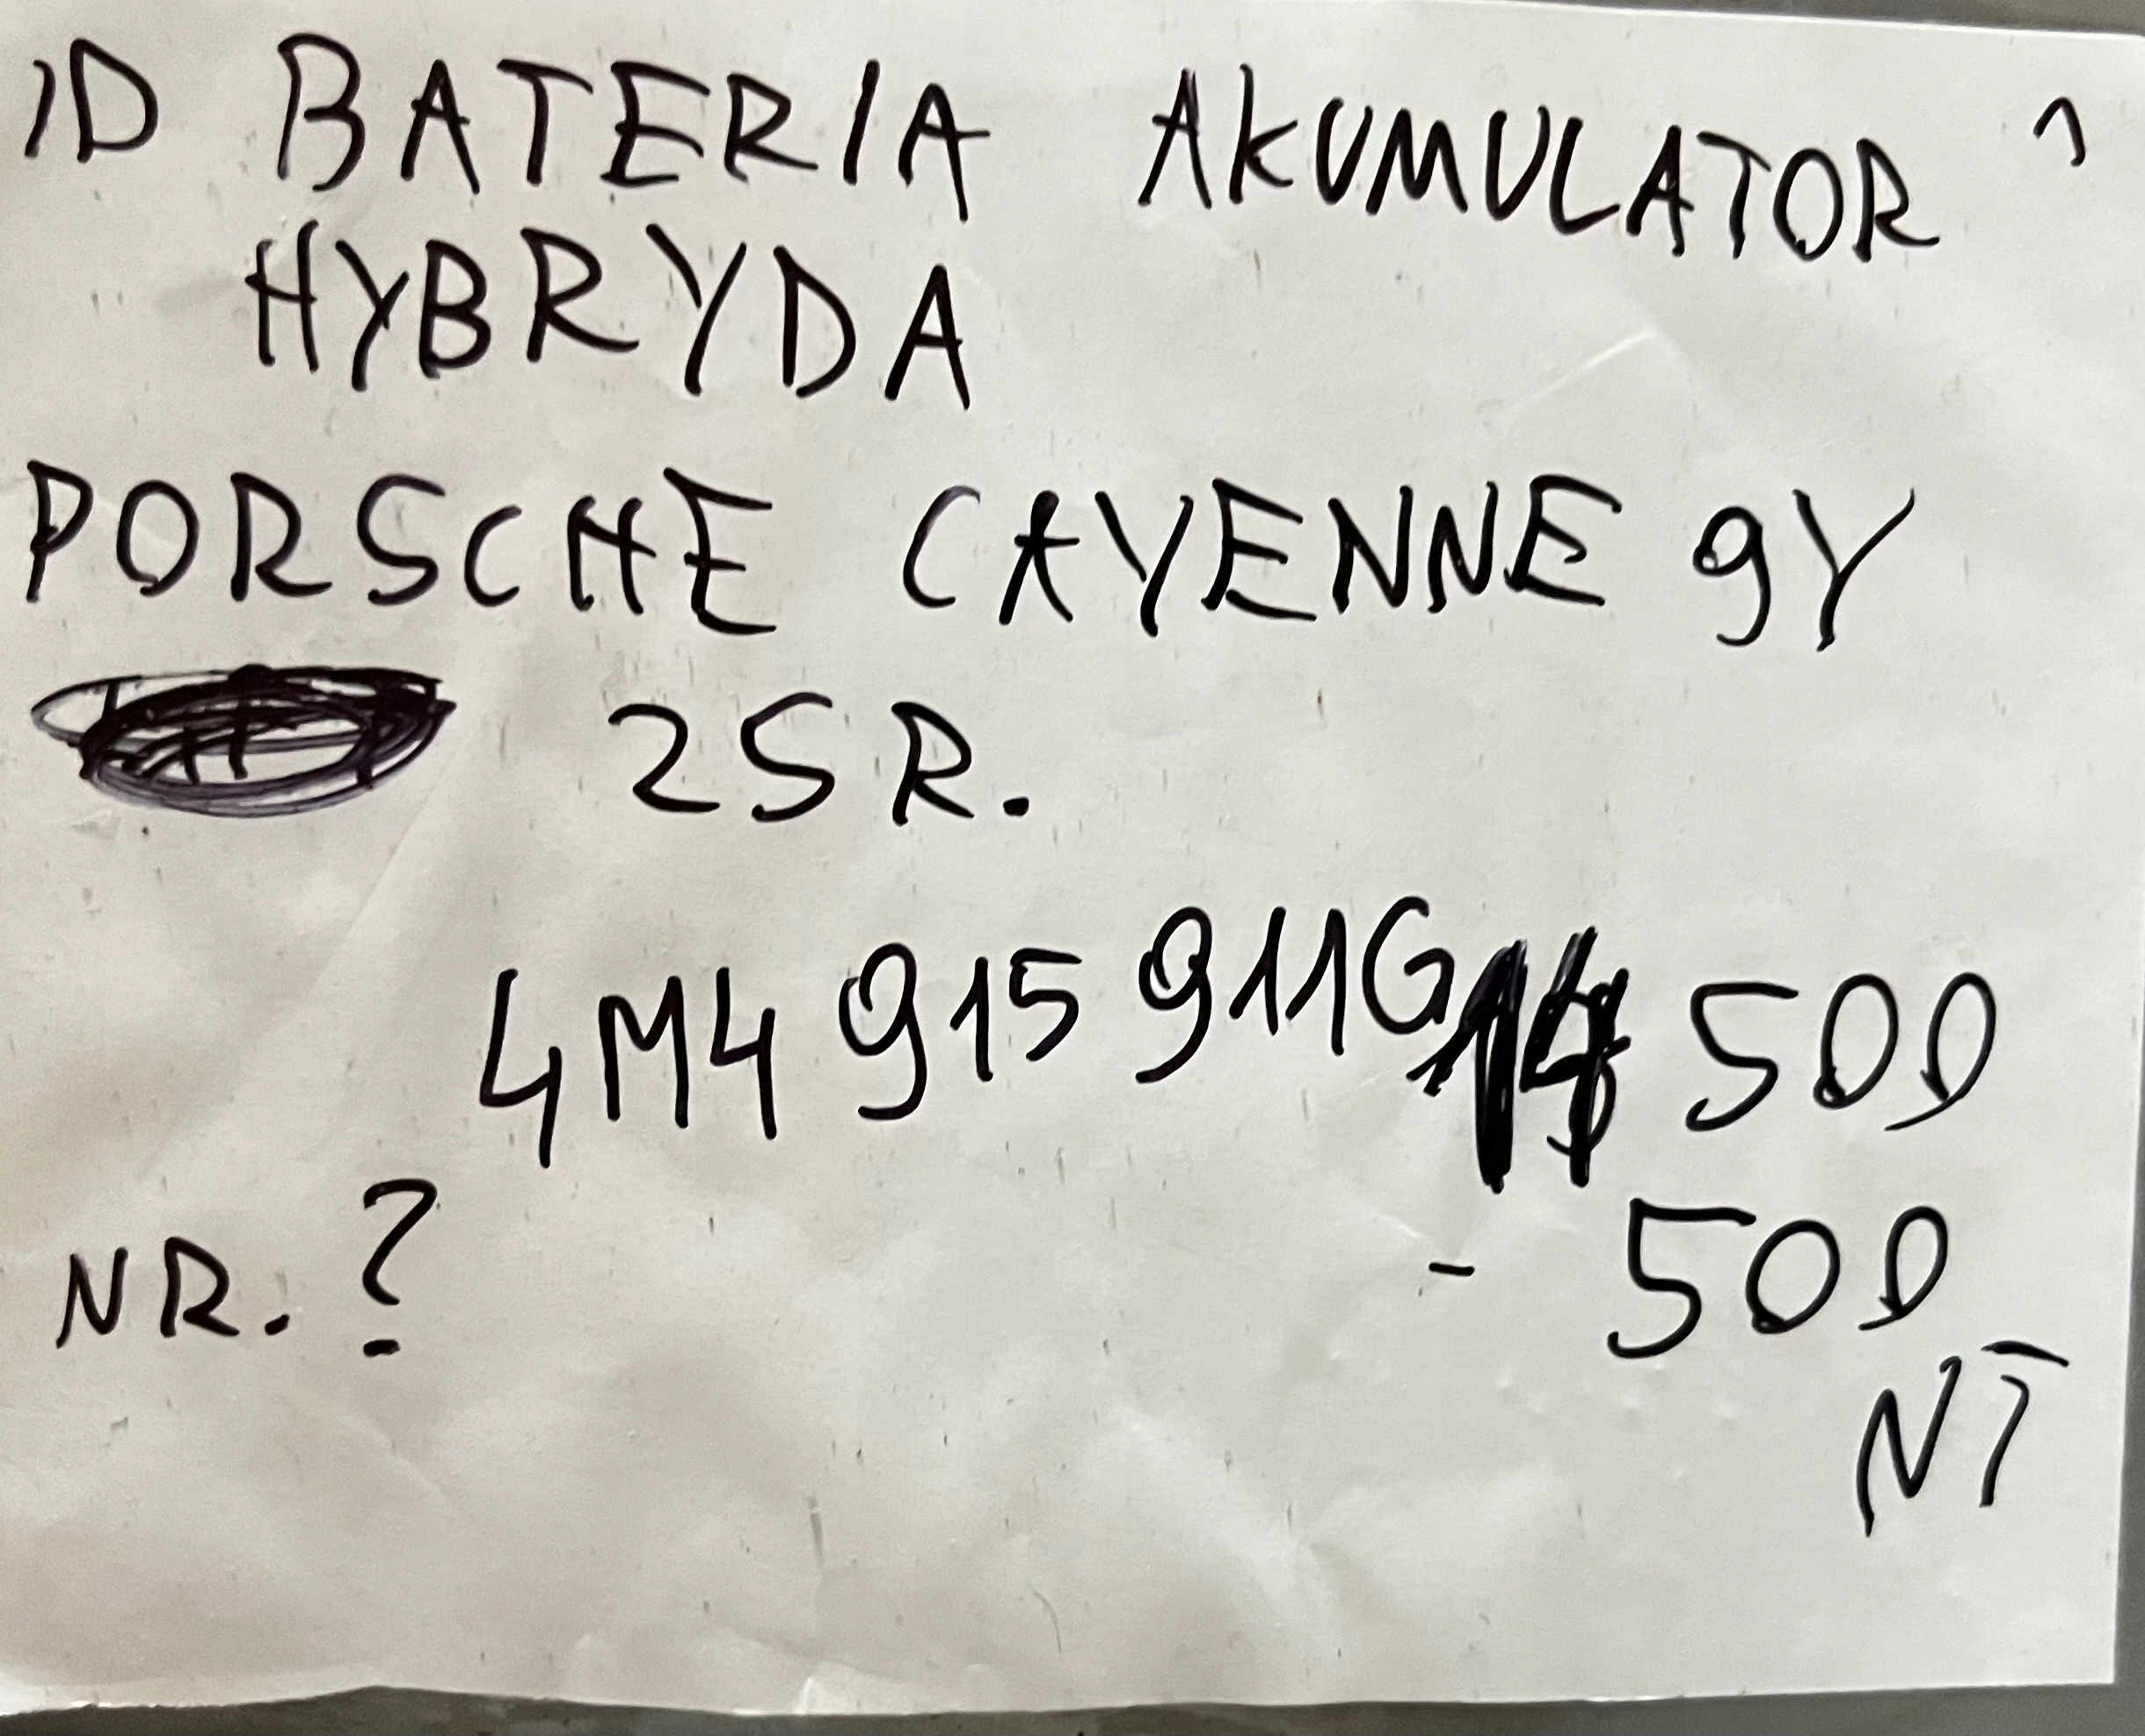 ID BATERIA AKUMULATOR
HYBRYDA
PORSCHE CAYENNE 9Y
25R.
4M4 915 911G 500
NR. ? - 500
NT